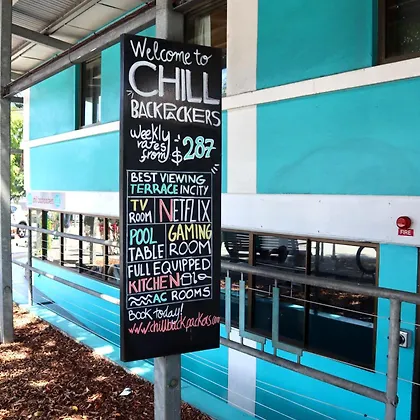 Welcome to
CHILL
BACKPACKERS
weekly
rates
from $287
BEST VIEWING
TERRACE IN CITY
TV
ROOM
NETFLIX
POOL
TABLE
GAMING
ROOM
FULL EQUIPPED
KITCHEN
AC ROOMS
Book today!
www.chillbackpackers.
FIRE